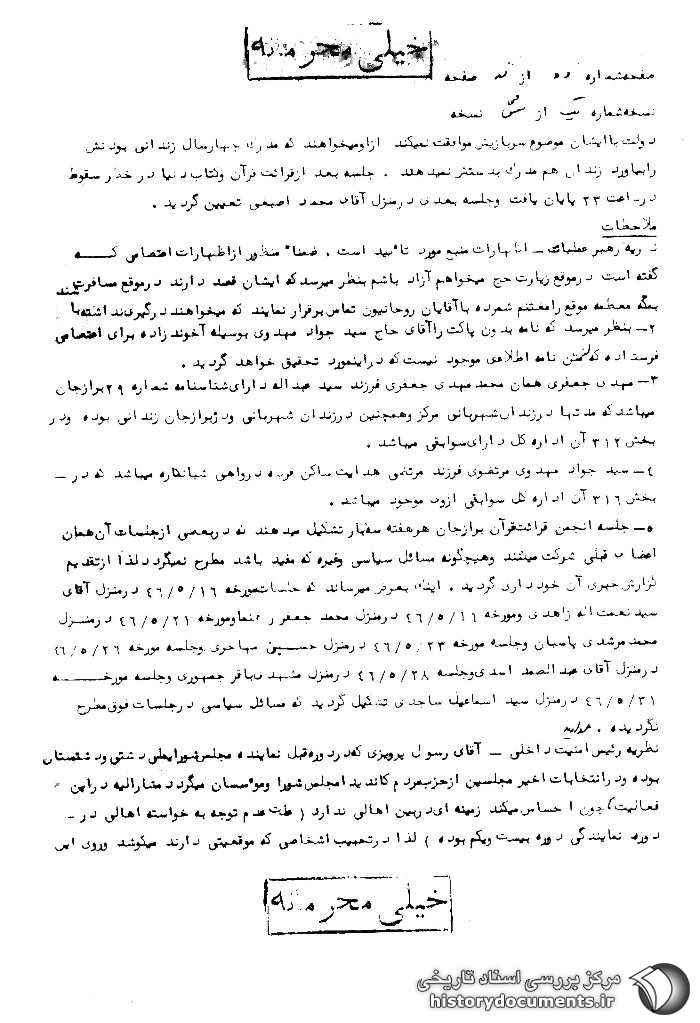 خیلی محرمانه
صفحه شماره از صفحه
نسخه شماره یک از نسخه
دولت با ایشان موضوع سربازیش موافقت نمیکند ازاومیخواهند که مدرک چهارسال زندانی بودنش
رابیاورد زندان هم مدرک بدستش نمیدهند . جلسه بعد ازقرائت قرآن وکتاب دنیا در خطر سقوط
درساعت ۲۳ پایان یافت وجلسه بعدی درمنزل آقای محمد اصبعی تعیین گردید .
ملاحظات
نظریه رهبر عملیات – اظهارات منبع مورد تائید است . ضمنا" منظور ازاظهارات اعتصامی کــه
گفته است درموقع زیارت حج میخواهم آزاد باشم بنظر میرسد که ایشان قصد دارند درموقع مسافرت
بمکه معظمه موقع رامغتنم شمرده باآقایان روحانیون تماس برقرار نمایند که میخواهند درگیری نداشته
۲– بنظر میرسد که نامه بدون پاکت راآقای حاج سید جواد مهدوی بوسیله آخوندزاده برای اعتصامی
فرستاده که نامه اطلاعی موجود نیست که دراینمورد تحقیق خواهد گردید .
۳– مهدی جعفری همان محمدمهدی جعفری فرزند سید عبداله دارای شناسنامه شماره ۲۹ برازجان
میباشد که مدتها درزندان شهربانی مرکز وهمچنین درزندان شهربانی ودژبرازجان زندانی بوده ودر
بخش ۳۱۲ آن اداره کل دارای سوابقی میباشد .
۴– سید جواد مهدوی مرتضوی فرزند مرتضی هدایت ساکن قریه درواهی شبانکاره میباشد که در –
بخش ۳۱۶ آن اداره کل سوابقی ازوی موجود میباشد .
۵– جلسه انجمن قرائت قرآن برازجان هرهفته سه بار تشکیل میدهند که دربعضی ازجلسات آن همان
اعضاء قبلی شرکت میکنند وهیچگونه مسائل سیاسی وغیره که مفید باشد مطرح نمیگردد لذا ازتقدیم
گزارش خبری آن خودداری گردید . اینک بعرض میرساند که جلسات مورخه ۴۶/۵/۱۶ درمنزل آقای
سید نعمت اله زاهدی ومورخه ۴۶/۵/۱۹ درمنزل محمد جعفر ومورخه ۴۶/۵/۲۱ درمنــزل
محمد مرشدی پاسبان وجلسه مورخه ۴۶/۵/۲۳ درمنزل حسیــن مهاجری وجلسه مورخه ۴۶/۵/۲۶
درمنزل آقای عبدالصمد اسدی وجلسه ۴۶/۵/۲۸ درمنزل مشهدی باقر جمهوری وجلسه مورخـــه
۴۶/۵/۳۱ درمنزل سید اسماعیل ساجدی تشکیل گردید که مسائل سیاسی درجلسات فوق مطرح
نگردیده .
نظریه رئیس امنیت داخلی – آقای رسول پرویزی که دردوره قبل نماینده مجلس شورایملی دشتی ودشتستان
بوده ودرانتخابات اخیر مجلسین ازحزب مردم کاندید امجلس شورا وموسسان میگردد مشارالیه دراین
فعالیت چون احساس میکند زمینه ای دربین اهالی ندارد ( علت عدم توجه به خواسته اهالی در –
دوره نمایندگی دوره بیست ویکم بوده ) لذا درتحبیب اشخاصی که موقعیتی دارند میکوشد وروی این
خیلی محرمانه
مرکز بررسی اسناد تاریخی
historydocuments.ir